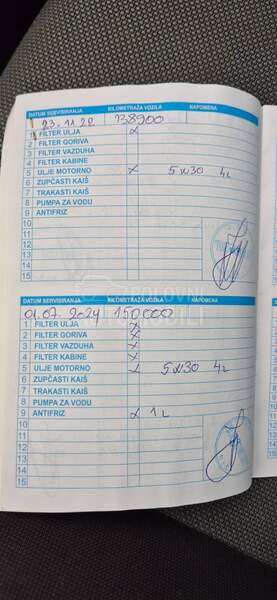 DATUM SERVISIRANJA KILOMETRAŽA VOZILA NAPOMENA
23.11.22 138900
1 FILTER ULJA x
2 FILTER GORIVA
3 FILTER VAZDUHA
4 FILTER KABINE
5 ULJE MOTORNO x 5W30 4L
6 ZUPČASTI KAIŠ
7 TRAKASTI KAIŠ
8 PUMPA ZA VODU
9 ANTIFRIZ
10
11
12
13
14
15
POLOVNI
AUTOMOBILI
DATUM SERVISIRANJA KILOMETRAŽA VOZILA NAPOMENA
01.07.2024 150000
1 FILTER ULJA x
2 FILTER GORIVA x
3 FILTER VAZDUHA x
4 FILTER KABINE x
5 ULJE MOTORNO x 5W30 4L
6 ZUPČASTI KAIŠ
7 TRAKASTI KAIŠ
8 PUMPA ZA VODU
9 ANTIFRIZ x 1L
10
11
12
13
14
15